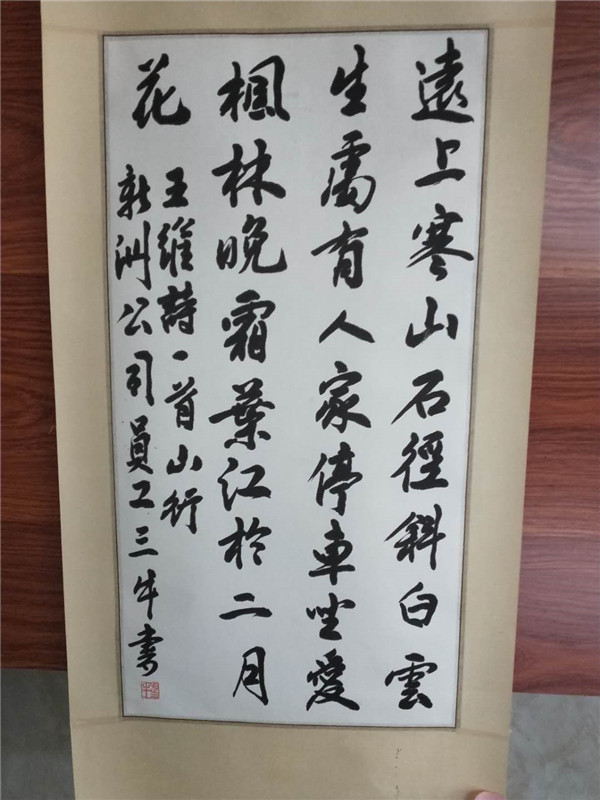 遠上寒山石徑斜白雲
生處有人家停車坐愛
楓林晚霜葉江於二月
花
王維詩一首山行
新洲公司員工三牛書